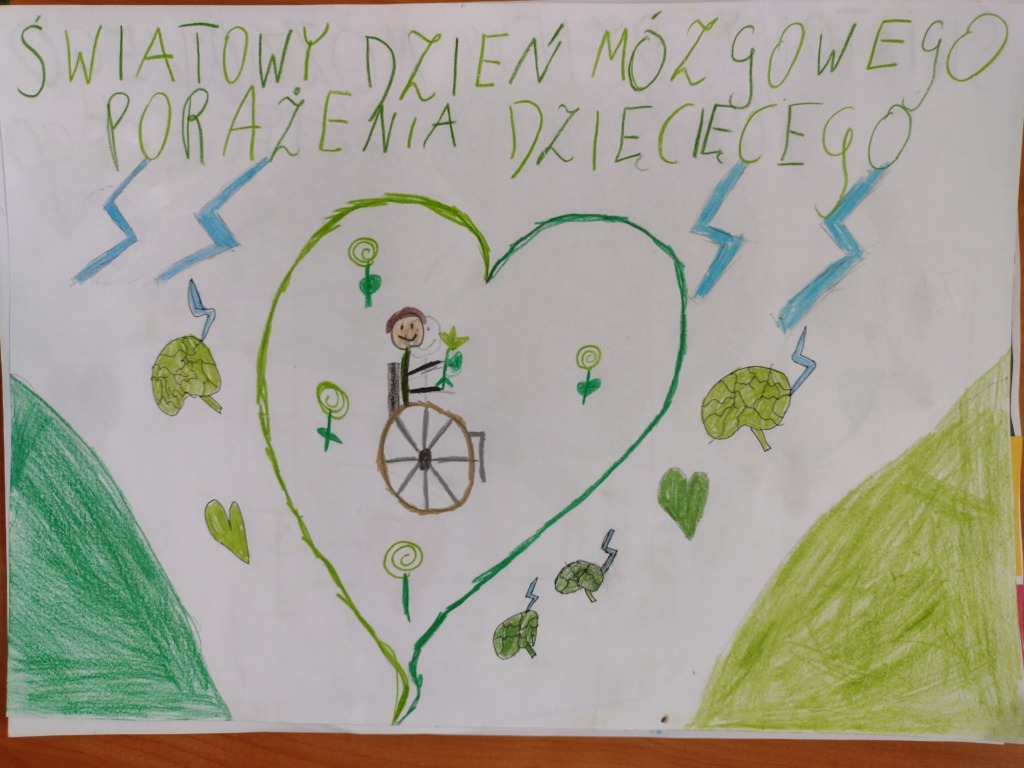 ŚWIATOWY DZIEŃ MÓZGOWEGO
PORAŻENIA DZIĘCIĘCEGO